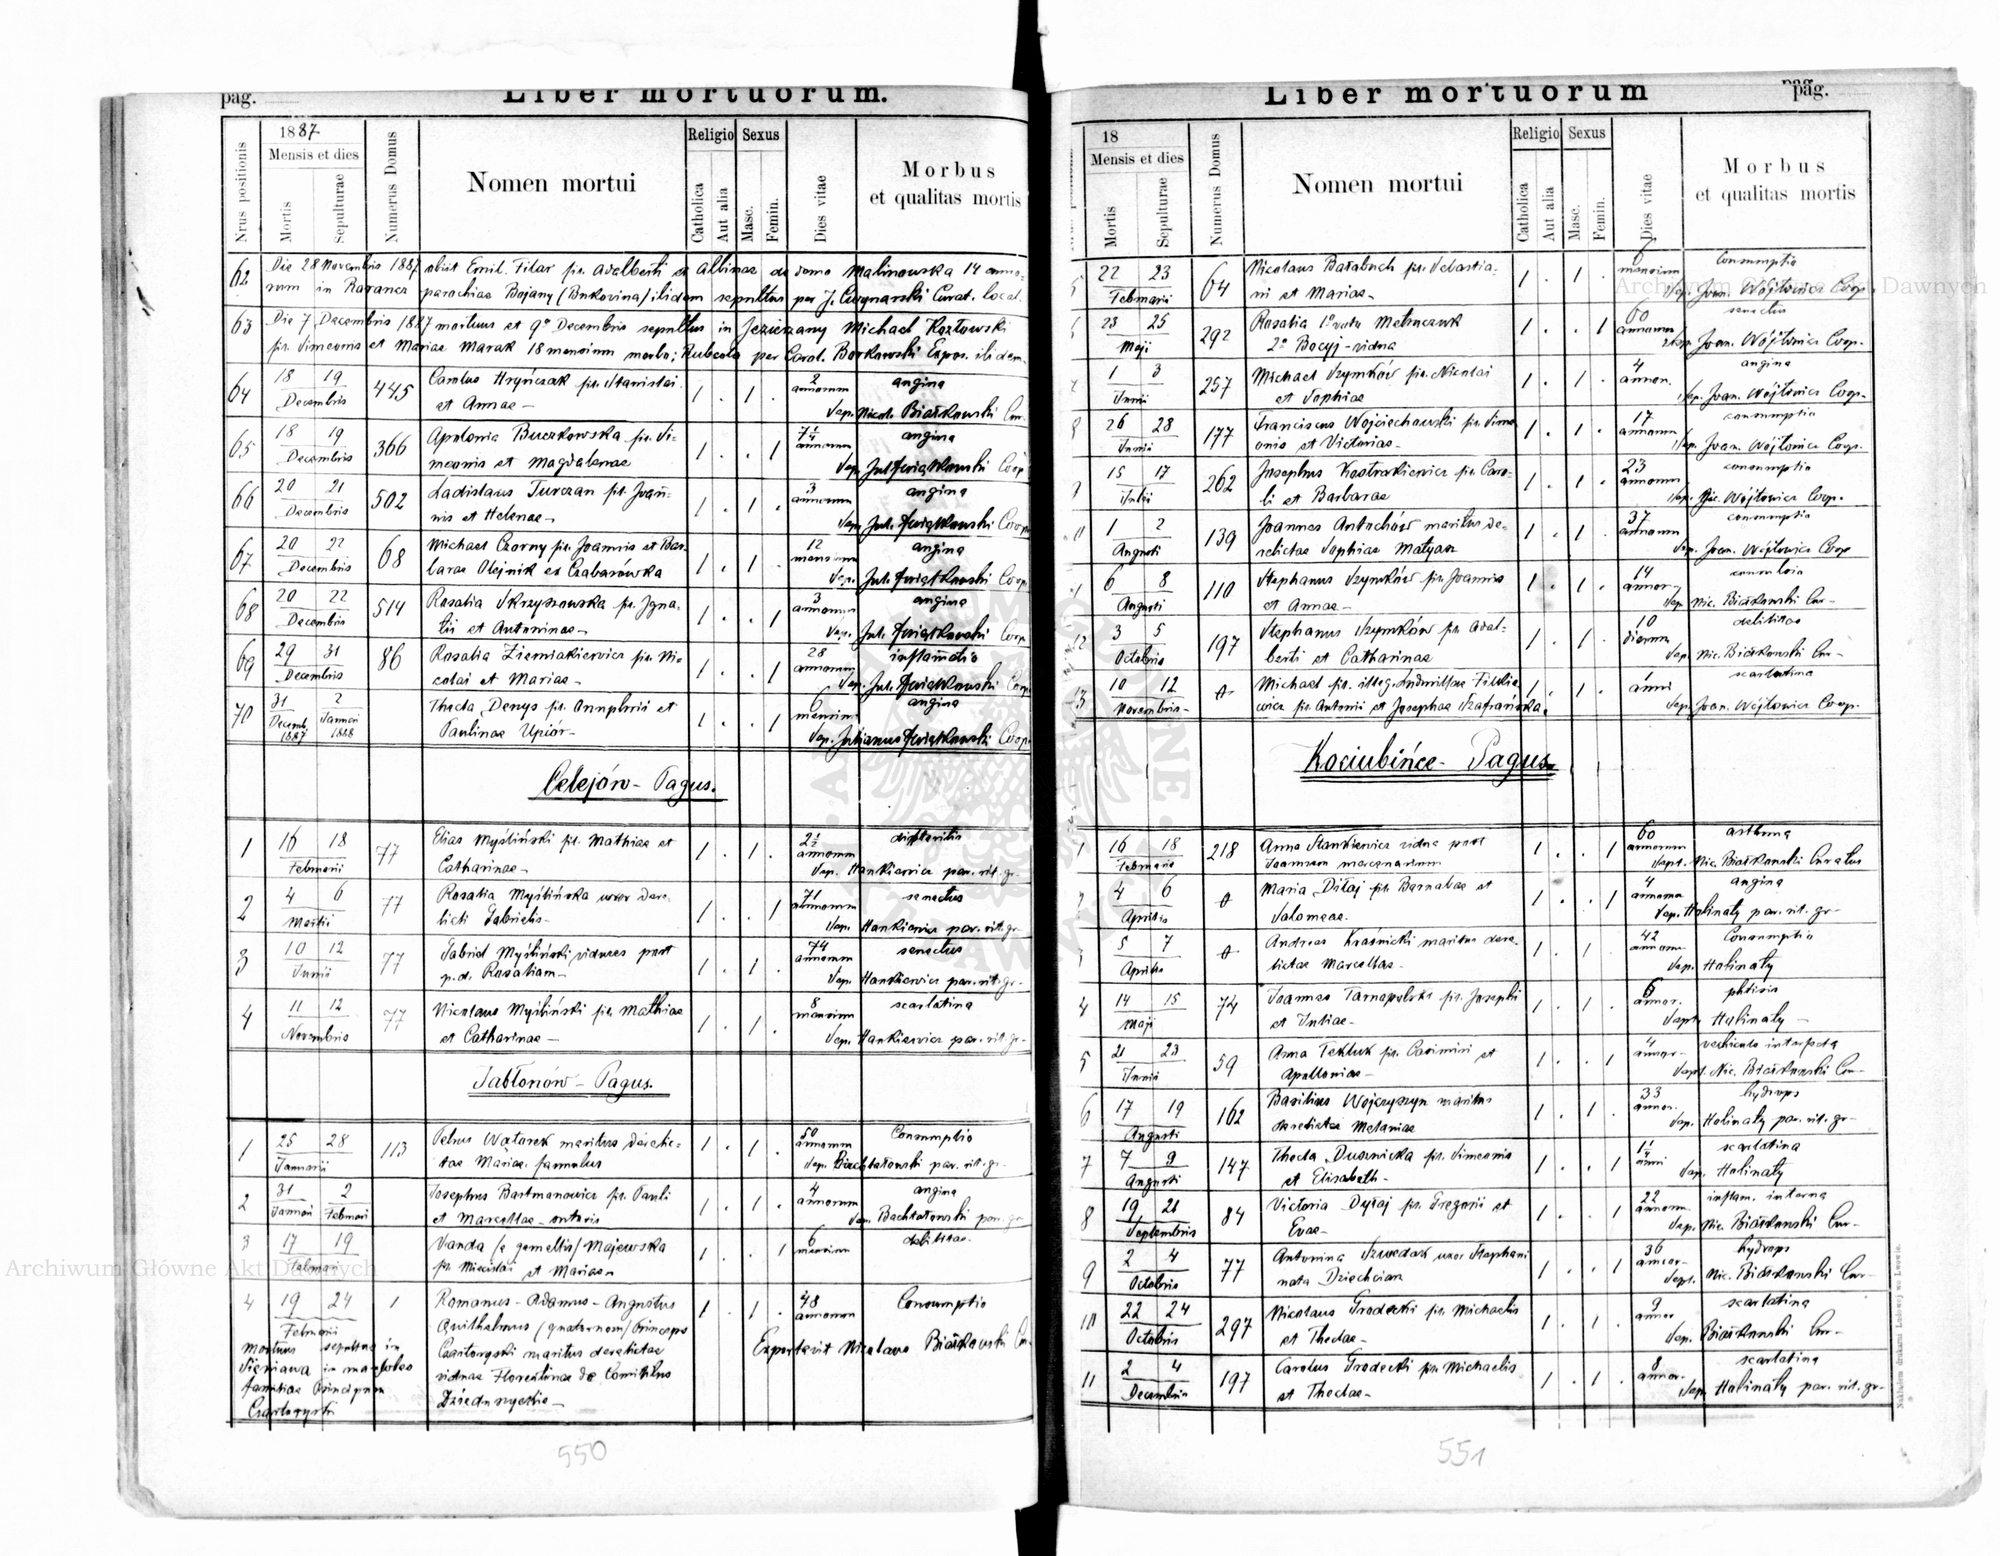 pag.
Liber mortuorum.
Nrus positionis
1887
Mensis et dies
Mortis
Sepulturae
Numerus Domus
Nomen mortui
Religio
Catholica
Aut alia
Sexus
Masc.
Femin.
Dies vitae
Morbus
et qualitas mortis
62 Die 28 Novembris 1887 obiit Emil. Filar pr. Adalberti et Albinae de domo Malinowska 14 anno-
rum in parochiae Bojany (Bukovina) ibidem sepultus per J. Curat. local.
63 Die 7 Decembris 1887 mortuus et 9a Decembris sepultus in Jezierzany Michael Kozłowski
pr. Simeonis et Mariae Marak 18 mensium morbo; Rubeola per Carol. Borkowski Expos. ibidem
64 18 19 445 Carolus Hryńczak pr. Stanislai 1 . 1 . 2 angina
Decembris et Annae — annorum Sep. Nicol. Białkowski Cur.
65 18 19 366 Apolonia Buczkowska pr. Si- 1 . . 1 angina
Decembris meonis et Magdalenae annorum Sep. Jul. Kwiatkowski Coop.
66 20 21 502 Ladislaus Turczan pr. Joan- 1 . 1 . 3 angina
Decembris nis et Helenae — annorum Sep. Jul. Kwiatkowski Coop.
67 20 22 68 Michael Czorny pr. Joannis et Bar- 1 . 1 . 12 angina
Decembris barae Olejnik ex Czabarówka mensium Sep. Jul. Kwiatkowski Coop.
68 20 22 514 Rosalia Skrzyszowska pr. Igna- 1 . . 1 3 angina
Decembris tii et Antoninae — annorum Sep. Jul. Kwiatkowski Coop.
69 29 31 86 Rosalia Ziemiakiewicz pr. Ni- 1 . . 1 28 inflamatio
Decembris colai et Mariae — annorum Sep. Jul. Kwiatkowski Coop.
70 31 2 Thecla Denys pr. Onuphrii et 1 . . 1 6 angina
Decemb. 1887 Januari 1888 Paulinae Upiór — mensium Sep. Julianus Kwiatkowski Coop.
Celejów — Pagus.
1 16 18 77 Elias Myśliński pr. Mathiae et 1 . 1 . 2½ diphteritis
Februarii Catharinae — annorum Sep. Hankiewicz par. rit. gr.
2 4 6 77 Rosalia Myślińska uxor dere- 1 . . 1 71 senectus
Martii licti Gabrielis — annorum Sep. Hankiewicz par. rit. gr.
3 10 12 77 Gabriel Myśliński viduus post 1 . 1 . 74 senectus
Junii p. d. Rosaliam — annorum Sep. Hankiewicz par. rit. gr.
4 11 12 77 Nicolaus Myśliński pr. Mathiae 1 . 1 . 8 scarlatina
Novembris et Catharinae — mensium Sep. Hankiewicz par. rit. gr.
Jabłonów — Pagus.
1 25 28 113 Petrus Watarek maritus derelic- 1 . 1 . 50 Consumptio
Januarii tae Mariae famulus annorum Sep. Bachtałowski par. rit. gr.
2 31 2 Josephus Bartmanowicz pr. Pauli 1 . 1 . 4 angina
Januari Februari et Marcellae annorum Sep. Bachtałowski par. gr.
3 17 19 Vanda (e gemellis) Majewska 1 . . 1 6 debilitas
Februari pr. Miecislai et Mariae — mensium
4 19 24 1 Romanus — Adamus — Augustus 1 . 1 . 48 Consumptio
Februarii Guilhelmus (quatornom) Princeps annorum
mortuus sepultus in Czartoryski maritus derelictae Exportavit Nicolaus Białkowski Cur.
Sieniawa in mausoleo viduae Florestinae de Comitibus
familiae Principum Dzieduszyckie —
Czartoryski
550
Liber mortuorum
pag.
18
Mensis et dies
Mortis
Sepulturae
Numerus Domus
Nomen mortui
Religio
Catholica
Aut alia
Sexus
Masc.
Femin.
Dies vitae
Morbus
et qualitas mortis
5 22 23 64 Nicolaus Barabach pr. Sebastia- 1 . 1 . Consumptio
Februarii ni et Mariae — mensium Sep. Joan. Wójtowicz Coop.
6 23 25 292 Rosalia 1o voto Metruczuk 1 . . 1 60 senectus
Maji 2o Bocyj — vidua annorum Sep. Joan. Wójtowicz Coop.
7 1 3 257 Michael Szymków pr. Nicolai 1 . 1 . 4 angina
Junii et Sophiae annor. Sep. Joan. Wójtowicz Coop.
8 26 28 177 Franciscus Wojciechowski pr. Sime- 1 . 1 . 17 consumptio
Junii onis et Victoriae — annorum Sep. Joan. Wójtowicz Coop.
9 15 17 262 Josephus Kostrakiewicz pr. Caro- 1 . 1 . 23 consumptio
Julii li et Barbarae annorum Sep. Wójtowicz Coop.
10 1 2 139 Joannes Antochów maritus de- 1 . 1 . 37 consumptio
Augusti relictae Sophiae Matyas annorum Sep. Joan. Wójtowicz Coop
11 6 8 110 Stephanus Szymków pr. Joannis 1 . 1 . 14
Augusti et Annae — annor. Sep. Nic. Białkowski Cur —
12 3 5 197 Stephanus Szymków pr. Adal- 1 . 1 . 10 debilitas
Octobris berti et Catharinae dierum Sep. Nic. Białkowski Cur —
13 10 12 Michael pr. illeg. Ludmillae 1 . 1 . 1 scarlatina
Novembris — pr. Antonii et Josephae Szafrańska. anni Sep. Joan. Wójtowicz Coop.
Kociubińce — Pagus.
1 16 18 218 Anna Stankiewicz vidua post 1 . . 1 60 asthma
Februarii Joannem mercenarium annorum Sept. Nic. Białkowski Curatus
2 4 6 Maria Diłaj pr. Barnabae et 1 . . 1 4 angina
Aprilis Salomeae. annorum Sep. Halinaty par. rit. gr —
3 5 7 Andreas Kraśnicki maritus dere- 1 . 1 . 42 Consumptio
Aprilis lictae Marcellae — annorum Sep. Halinaty
4 14 15 74 Joannes Tarnapolski pr. Josephi 1 . 1 . 6 phtisis
Maji et Juliae — annor. Sept. Halinaty —
5 21 23 59 Anna Tekluk pr. Casimiri et 1 . . 1 4 vehiculo interfecta
Junii Apolloniae — annor — Sept. Nic. Białkowski Cur —
6 17 19 162 Basilius Wojczyszyn maritus 1 . 1 . 33 hydrops
Augusti derelictae Melaniae annor. Sep. Halinaty par. rit. gr —
7 7 9 147 Thecla Dusznicka pr. Simeonis 1 . . 1 scarlatina
Augusti et Elisabeth — anni Sep. Halinaty
8 19 21 84 Victoria Dyłaj pr. Gregorii et 1 . . 1 22 inflam. interna
Septembris Evae — annorum Sep. Nic. Białkowski Cur —
9 2 4 77 Antonina Szwedak uxor Stephani 1 . . 1 36 hydrops
Octobris nata Dziechciar annor — Sept. Nic. Białkowski Cur —
10 22 24 297 Nicolaus Grodecki pr. Michaelis 1 . 1 . 9 scarlatina
Octobris et Theclae — annor Sep. Białkowski Cur —
11 2 4 197 Carolus Grodecki pr. Michaelis 1 . 1 . 8 scarlatina
Decembris et Theclae — annor. Sep. Halinaty par. rit. gr —
Nakładem drukarni Ludowej we Lwowie.
551
Archiwum Główne Akt Dawnych
Archiwum Główne Akt Dawnych